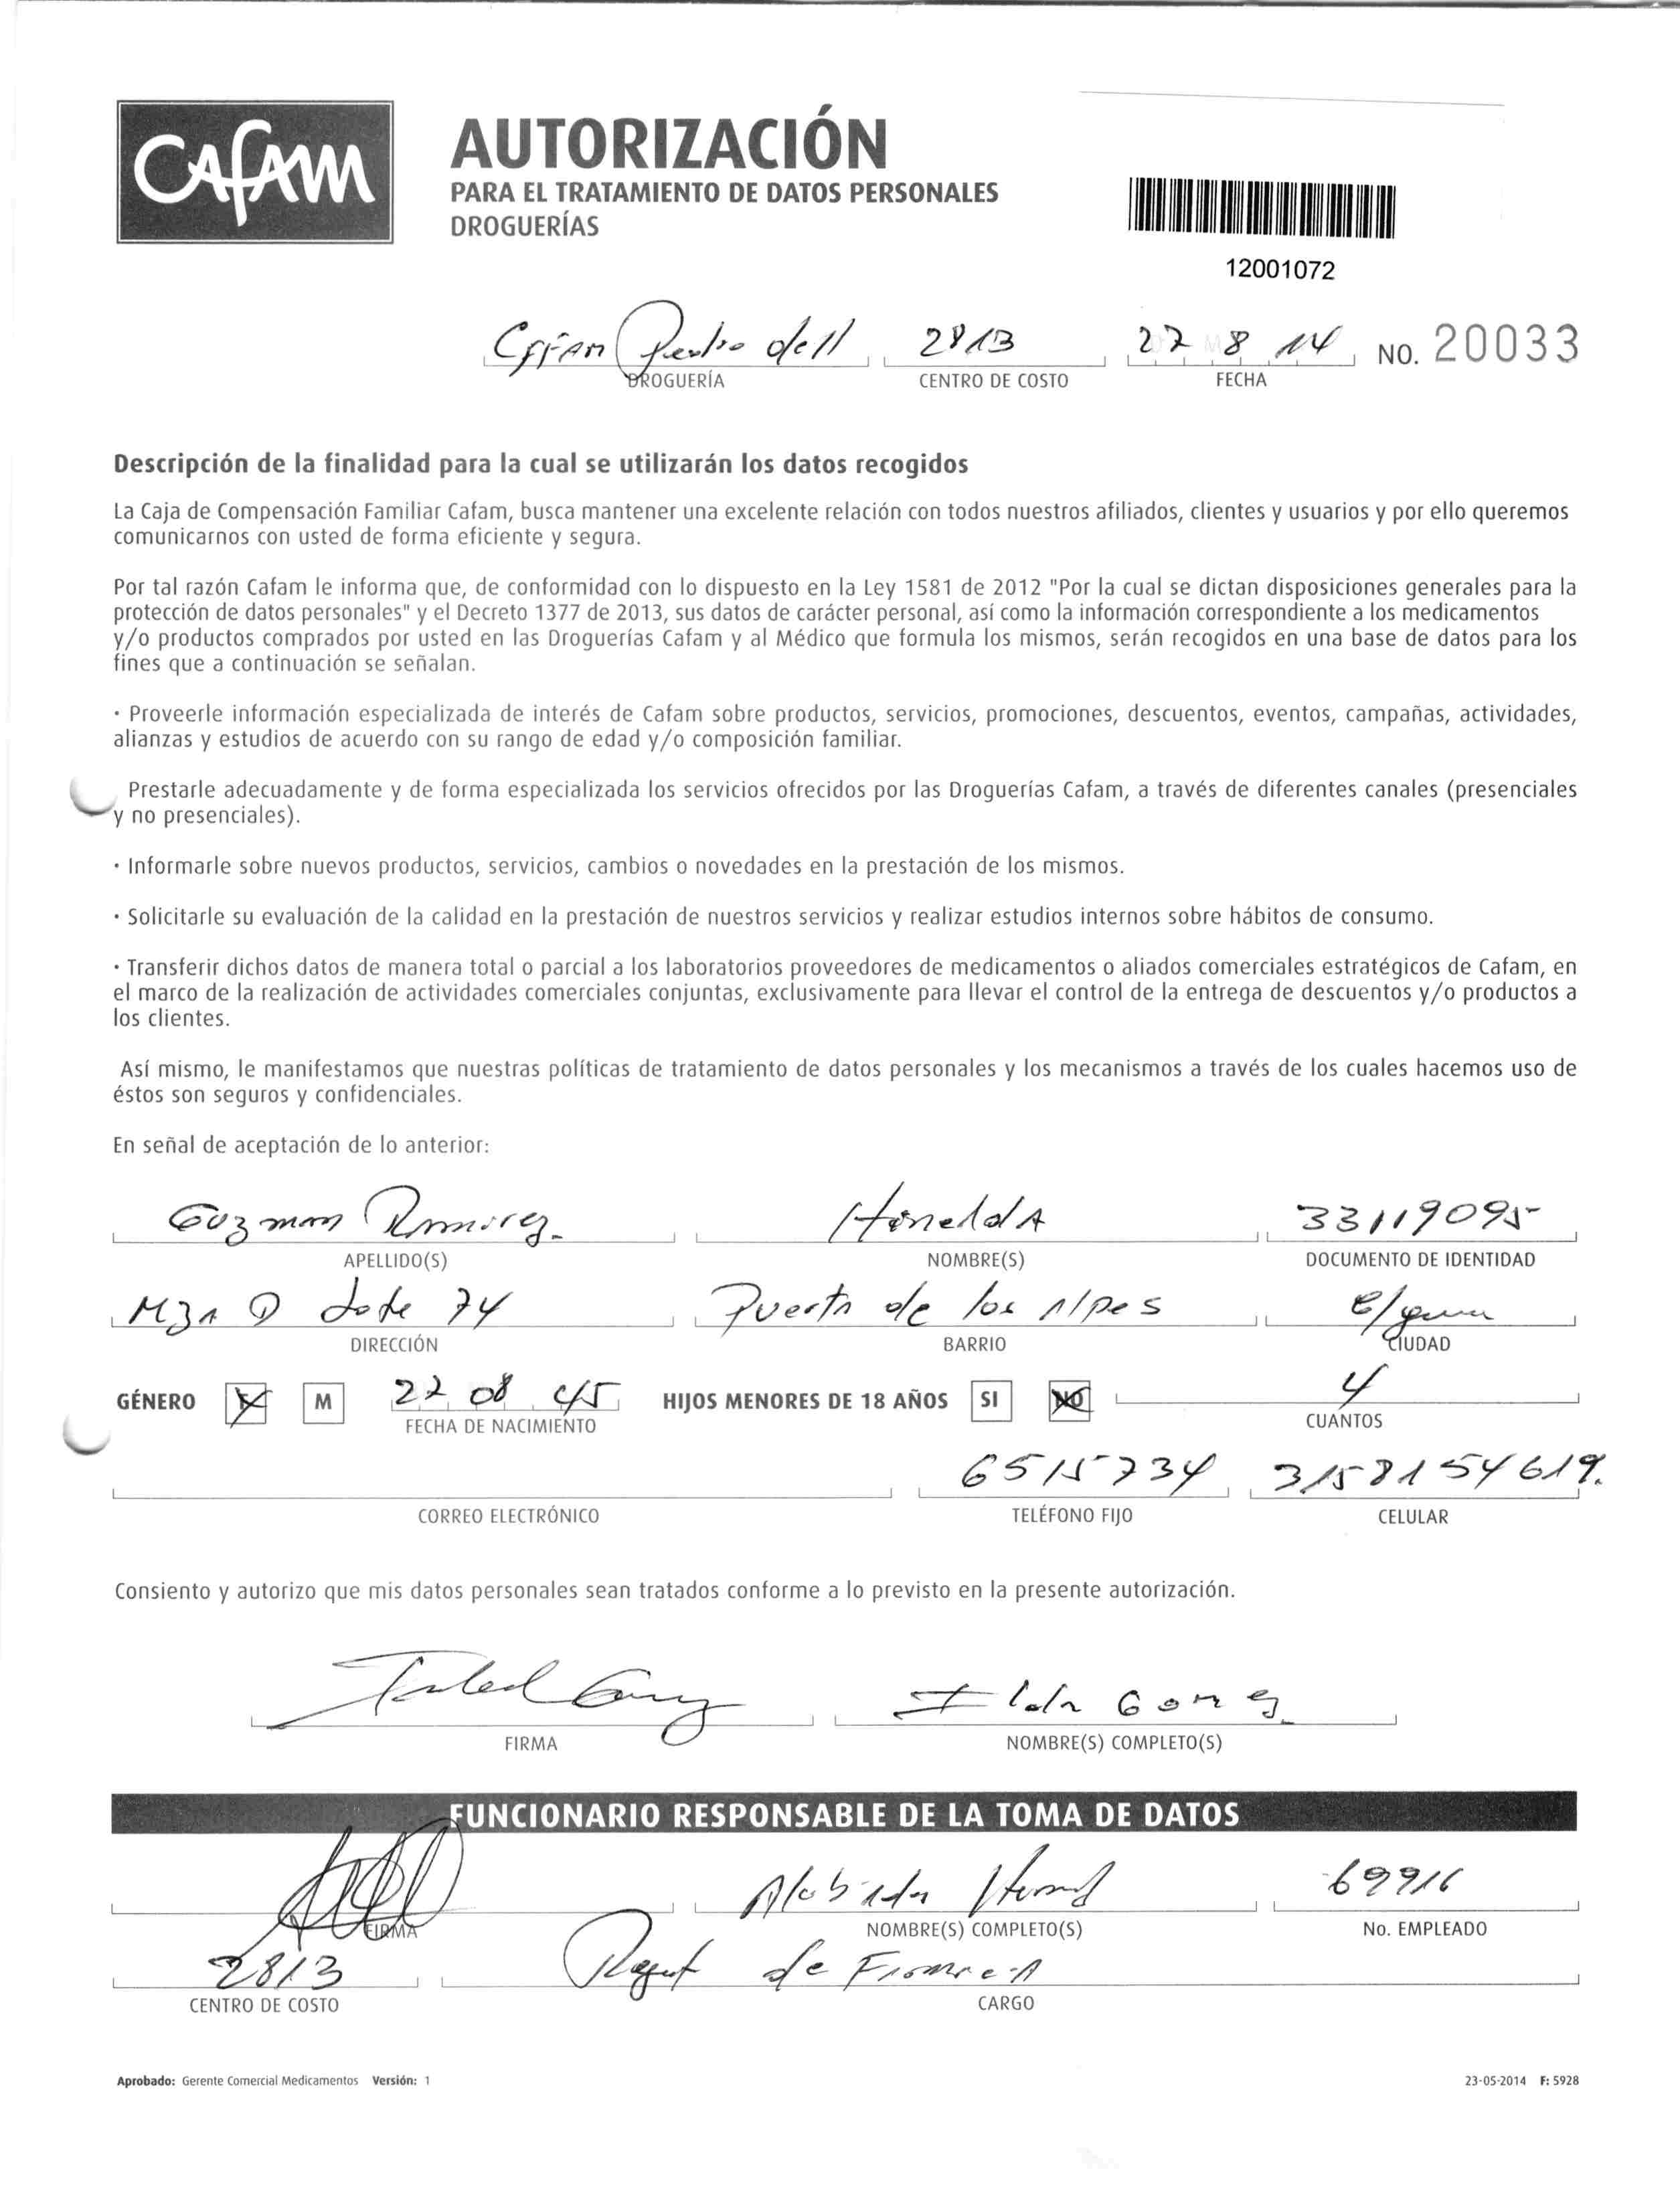 Cafam
AUTORIZACIÓN
PARA EL TRATAMIENTO DE DATOS PERSONALES
DROGUERÍAS
12001072
2813 27 8 14 NO. 20033
DROGUERÍA CENTRO DE COSTO FECHA
Descripción de la finalidad para la cual se utilizarán los datos recogidos
La Caja de Compensación Familiar Cafam, busca mantener una excelente relación con todos nuestros afiliados, clientes y usuarios y por ello queremos
comunicarnos con usted de forma eficiente y segura.
Por tal razón Cafam le informa que, de conformidad con lo dispuesto en la Ley 1581 de 2012 "Por la cual se dictan disposiciones generales para la
protección de datos personales" y el Decreto 1377 de 2013, sus datos de carácter personal, así como la información correspondiente a los medicamentos
y/o productos comprados por usted en las Droguerías Cafam y al Médico que formula los mismos, serán recogidos en una base de datos para los
fines que a continuación se señalan.
· Proveerle información especializada de interés de Cafam sobre productos, servicios, promociones, descuentos, eventos, campañas, actividades,
alianzas y estudios de acuerdo con su rango de edad y/o composición familiar.
Prestarle adecuadamente y de forma especializada los servicios ofrecidos por las Droguerías Cafam, a través de diferentes canales (presenciales
y no presenciales).
· Informarle sobre nuevos productos, servicios, cambios o novedades en la prestación de los mismos.
· Solicitarle su evaluación de la calidad en la prestación de nuestros servicios y realizar estudios internos sobre hábitos de consumo.
· Transferir dichos datos de manera total o parcial a los laboratorios proveedores de medicamentos o aliados comerciales estratégicos de Cafam, en
el marco de la realización de actividades comerciales conjuntas, exclusivamente para llevar el control de la entrega de descuentos y/o productos a
los clientes.
Así mismo, le manifestamos que nuestras políticas de tratamiento de datos personales y los mecanismos a través de los cuales hacemos uso de
éstos son seguros y confidenciales.
En señal de aceptación de lo anterior:
Guzman Ramirez 33119095
APELLIDO(S) NOMBRE(S) DOCUMENTO DE IDENTIDAD
Mza D Lote 74 Puerta de los Alpes
DIRECCIÓN BARRIO CIUDAD
GÉNERO M 22 08 45 HIJOS MENORES DE 18 AÑOS SI NO 4
FECHA DE NACIMIENTO CUANTOS
6515734 3158154619.
CORREO ELECTRÓNICO TELÉFONO FIJO CELULAR
Consiento y autorizo que mis datos personales sean tratados conforme a lo previsto en la presente autorización.
Ilda Gomez
FIRMA NOMBRE(S) COMPLETO(S)
FUNCIONARIO RESPONSABLE DE LA TOMA DE DATOS
69916
FIRMA NOMBRE(S) COMPLETO(S) No. EMPLEADO
2813 de
CENTRO DE COSTO CARGO
Aprobado: Gerente Comercial Medicamentos Versión: 1 23-05-2014 F: 5928